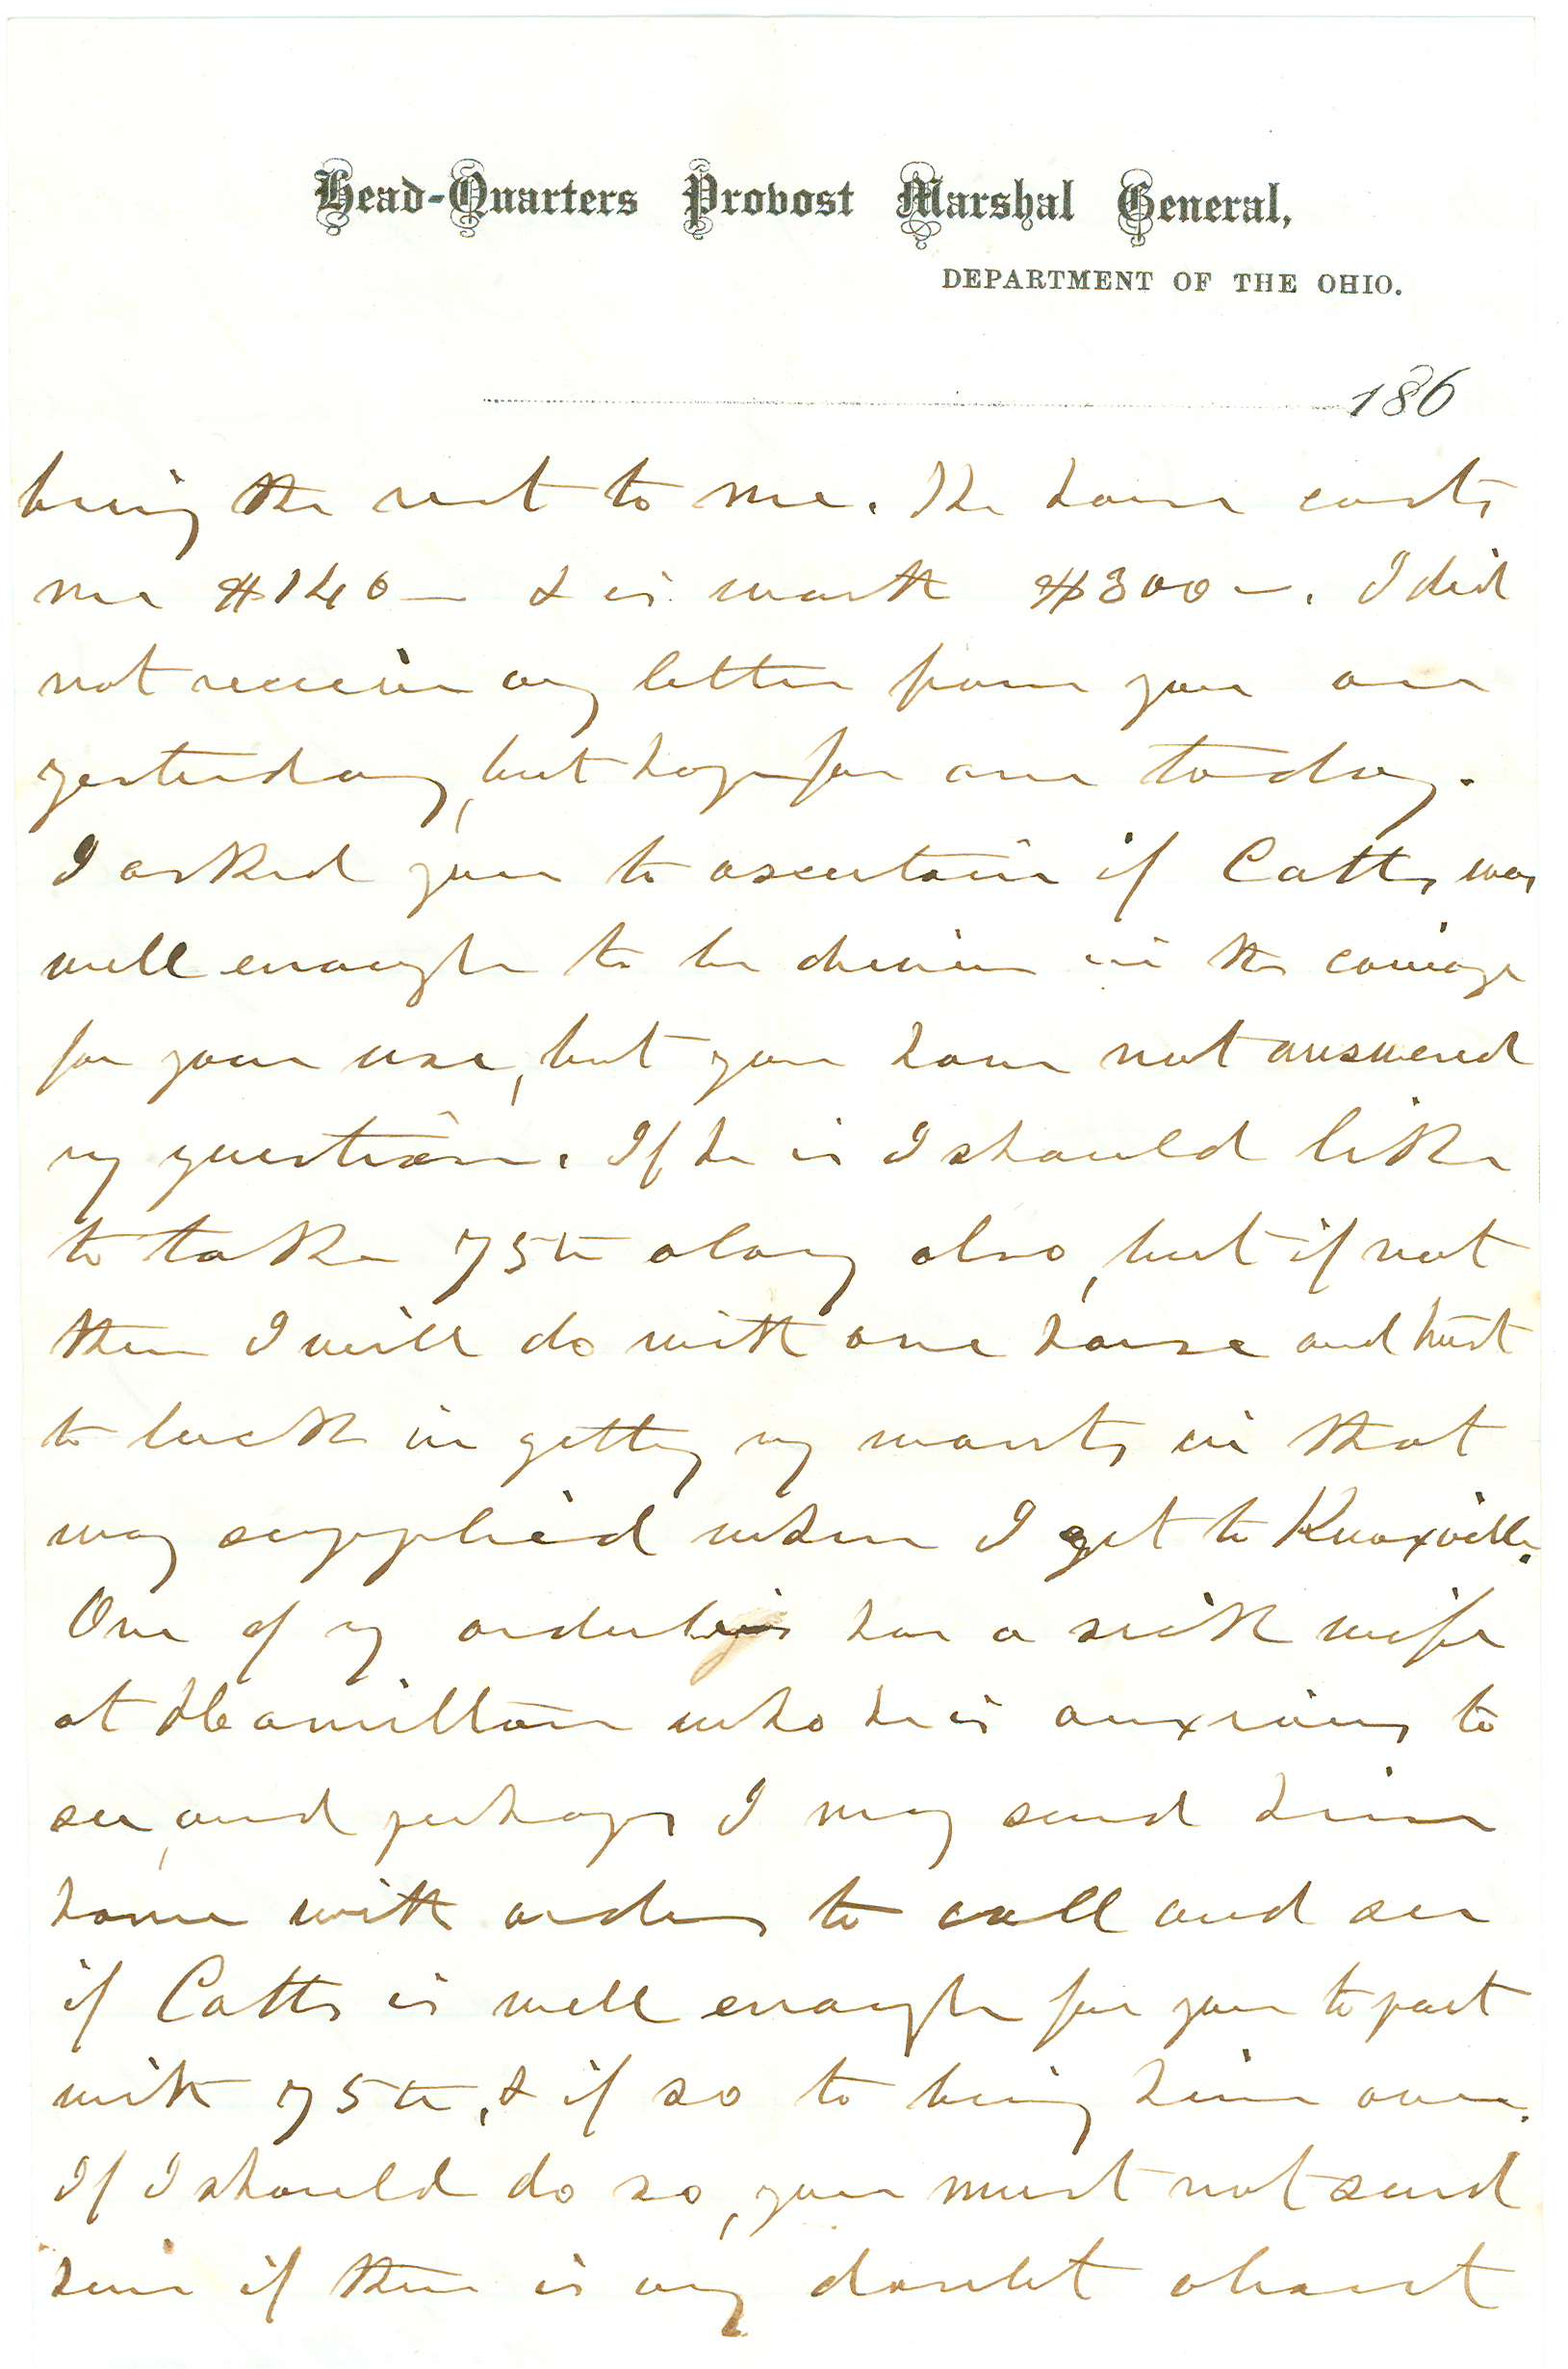 Head-Quarters Provost Marshal General,
DEPARTMENT OF THE OHIO.
186
bring the rest to me. The horse costs
me $140— & is worth $300—. I did
not receive any letter from you
yesterday, but hope for one today.
I asked you to ascertain if Catts was
well enough to be driven in the carriage
for your use, but you have not answered
my question. If he is I should like
to take 75th along also, but if not
then I will do with one horse and trust
to luck in getting my wants in that
way supplied when I get to Knoxville.
One of my orderlies has a sick wife
at Hamilton who he is anxious to
see, and perhaps I may send him
home with orders to call and see
if Catts is well enough for you to part
with 75th, & if so to bring him over.
If I should do so, you must not send
him if there is any doubt about